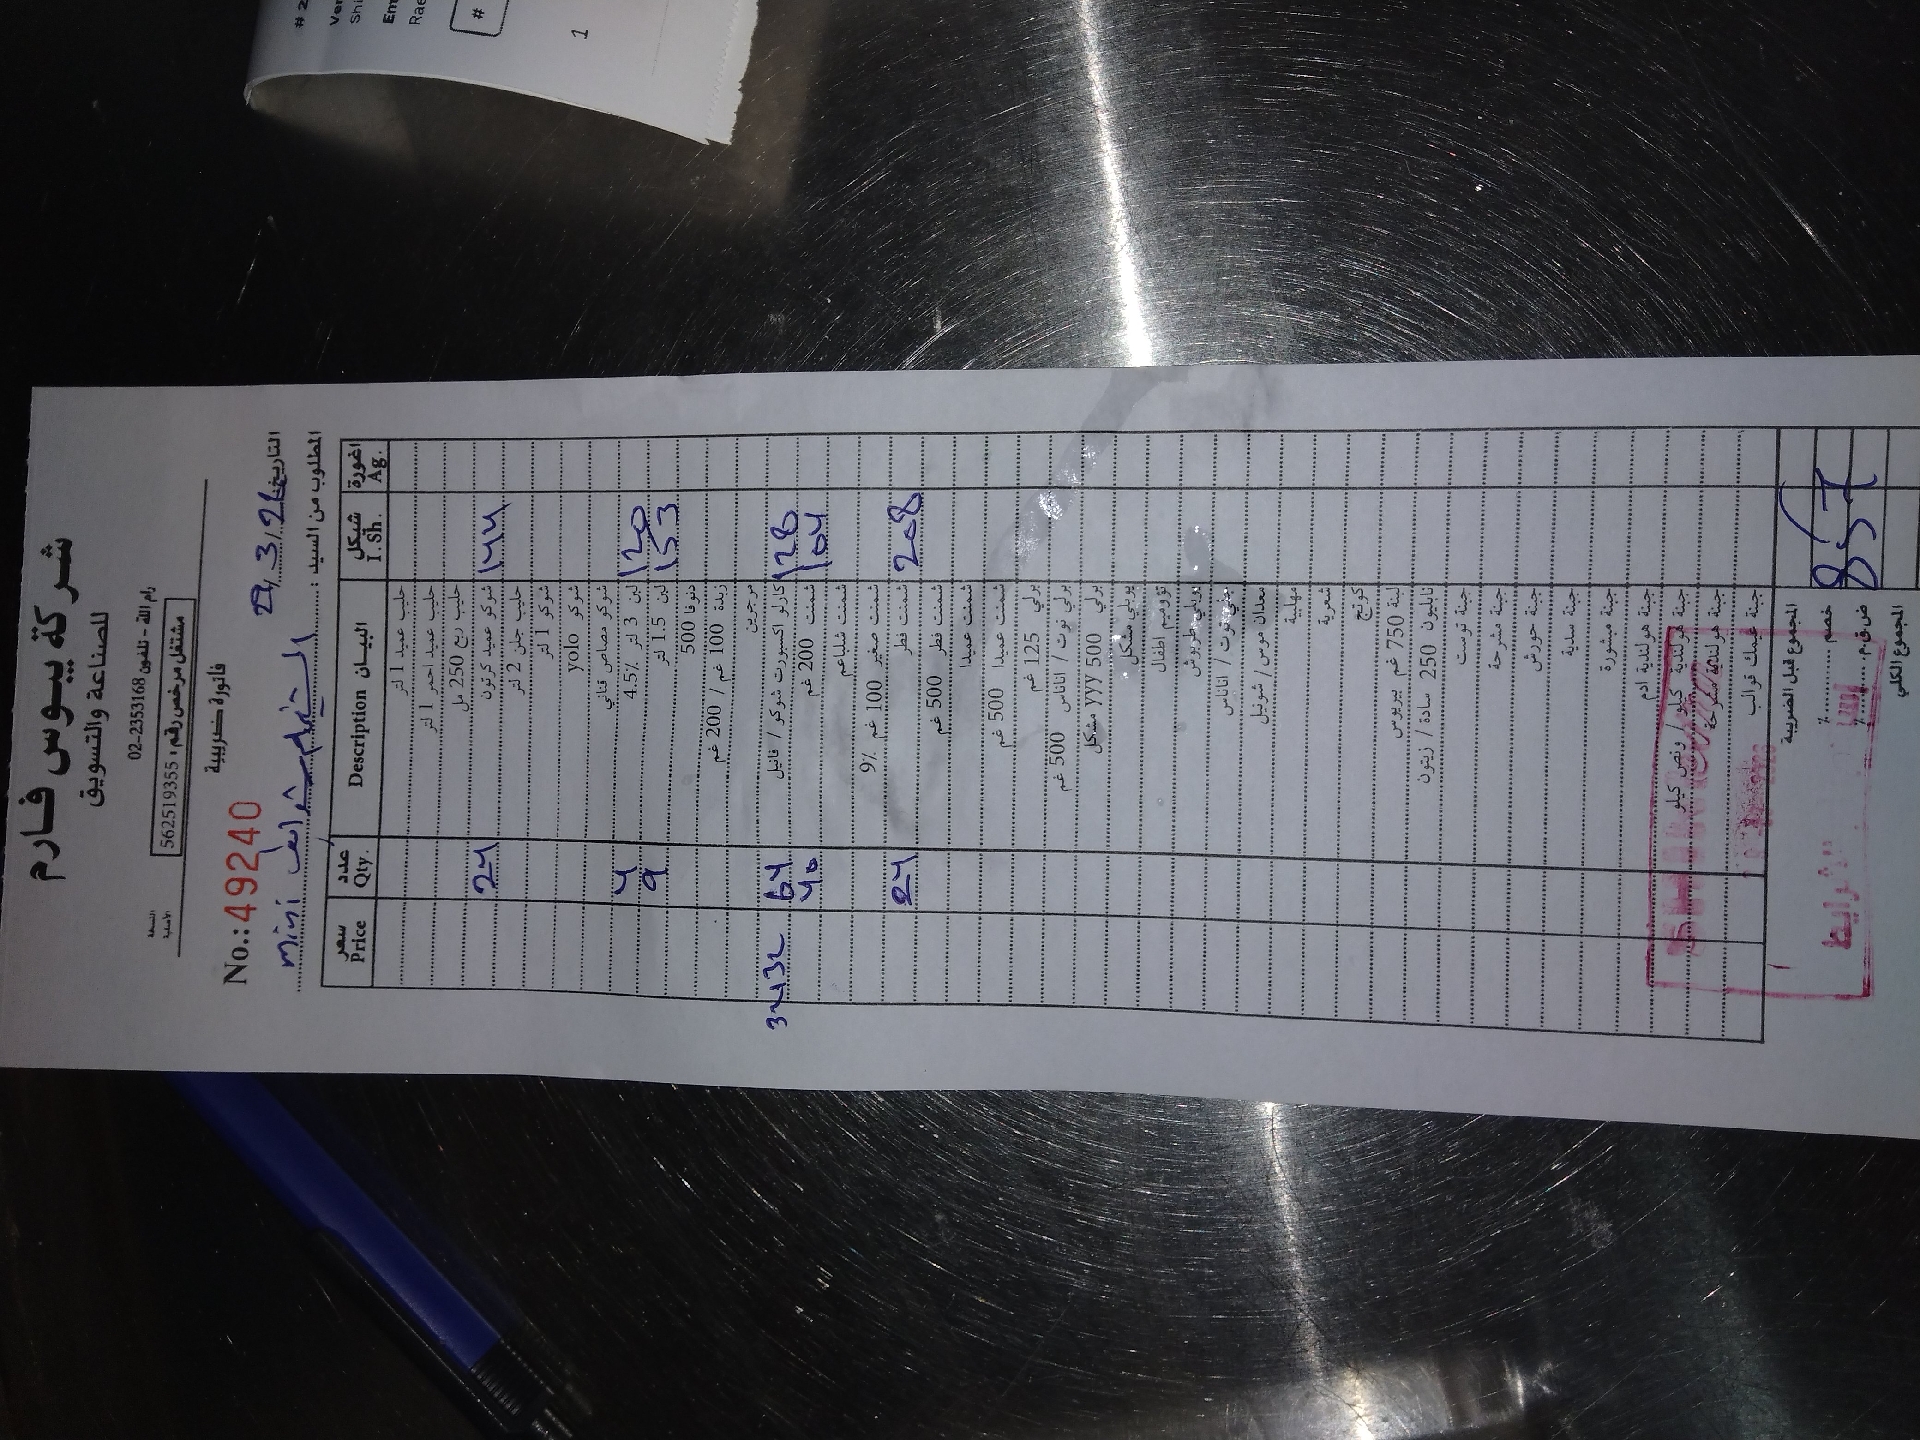 شركة بيوس فارم
للصناعة والتسويق
رام الله - تلفون 02-2353168
مشتغل مرخص رقم 562519355
فاتورة ضريبية
No.: 49240
التاريخ: 29, 3, 21
المطلوب من السيد: mini
سعر عدد البيان شيكل اغورة
Price Qty. Description I. Sh. Ag.
حليب عميد 1 لتر
حليب عميد احمر 1 لتر
حليب ربع 250 مل
24 شوكو عميد كرتون 144
حليب جلن 2 لتر
شوكو 1 لتر
شوكو yolo
شوكو مصاص قناني
4 لبن 3 لتر 4.5% 120
9 لبن 1.5 لتر 153
دنوفا 500
زبدة 100 غم / 200 غم
مرجرين
32 32 64 كارلو اكسبورت شوكو / فانيل 128
40 شمنت 200 غم 104
شمنت شلباعم
شمنت صغير 100 غم 9%
24 شمنت فطر 208
شمنت فطر 500 غم
شمنت عميدا
شمنت عميدا 500 غم
بولي 125 غم
بولي توت / اناناس 500 غم
بولي 500 yyy مشكل
يوبلي مشكل
اطفال
/ اناناس
معدان موس / شونيل
مهلبية
شعرية
كوتج
لبنة 750 غم بيريوس
نابليون 250 سادة / زيتون
جبنة توست
جبنة مشرحة
جبنة حوردش
جبنة سلدية
جبنة مبشورة
جبنة هولندية ادم
جبنة هولندية كيلو / ونص كيلو
جبنة هولندية مشرحة
جبنة عيمك قوالب
المجموع قبل الضريبة
خصم ........ %
ض.ق.م ........ %
857
المجموع الكلي
# 2
Ver
Shi
Em
Rae
#
1